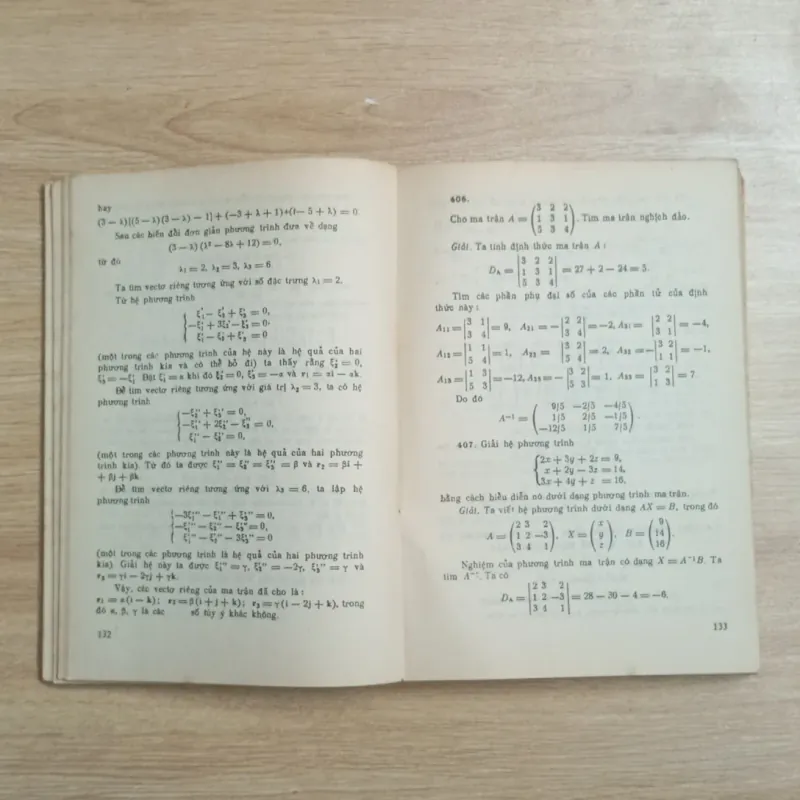 hay
(3 — λ)[(5 — λ)(3 — λ) — 1] + (—3 + λ + 1) + (1 — 5 + λ) = 0.
Sau các biến đổi đơn giản phương trình đưa về dạng
(3 — λ) (λ² — 8λ + 12) = 0,
từ đó
λ₁ = 2, λ₂ = 3, λ₃ = 6
Ta tìm vectơ riêng tương ứng với số đặc trưng λ₁ = 2.
Từ hệ phương trình
ξ₁' — ξ₂' + ξ₃' = 0,
—ξ₁' + 3ξ₂' — ξ₃' = 0,
ξ₁' — ξ₂' + ξ₃' = 0
(một trong các phương trình của hệ này là hệ quả của hai
phương trình kia và có thể bỏ đi) ta thấy rằng ξ₂' = 0,
ξ₃' = —ξ₁' Đặt ξ₁' = α khi đó ξ₂' = 0, ξ₃' = —α và r₁ = αi — αk.
Để tìm vectơ riêng tương ứng với giá trị λ₂ = 3, ta có hệ
phương trình
—ξ₂'' + ξ₃'' = 0,
—ξ₁'' + 2ξ₂'' — ξ₃'' = 0,
ξ₁'' — ξ₂'' = 0,
(một trong các phương trình này là hệ quả của hai phương
trình kia). Từ đó ta được ξ₁'' = ξ₂'' = ξ₃'' = β và r₂ = βi +
+ βj + βk
Để tìm vectơ riêng tương ứng với λ₃ = 6, ta lập hệ
phương trình
—3ξ₁''' — ξ₂''' + ξ₃''' = 0,
—ξ₁''' — ξ₂''' — ξ₃''' = 0,
ξ₁''' — ξ₂''' — 3ξ₃''' = 0
(một trong các phương trình là hệ quả của hai phương trình
kia) Giải hệ này ta được ξ₁''' = γ, ξ₂''' = —2γ, ξ₃''' = γ và
r₃ = γi — 2γj + γk.
Vậy, các vectơ riêng của ma trận đã cho là :
r₁ = α(i — k); r₂ = β(i + j + k); r₃ = γ(i — 2j + k), trong
đó α, β, γ là các số tùy ý khác không.
132
406.
Cho ma trận A = (3 2 2
1 3 1
5 3 4). Tìm ma trận nghịch đảo.
Giải. Ta tính định thức ma trận A :
D_A = |3 2 2
1 3 1
5 3 4| = 27 + 2 — 24 = 5.
Tìm các phần phụ đại số của các phần tử của định
thức này :
A₁₁ = |3 1; 3 4| = 9, A₂₁ = —|2 2; 3 4| = —2, A₃₁ = |2 2; 3 1| = —4,
A₁₂ = |1 1; 5 4| = 1, A₂₂ = |3 2; 5 4| = 2, A₃₂ = —|3 2; 1 1| = —1,
A₁₃ = |1 3; 5 3| = —12, A₂₃ = —|3 2; 5 3| = 1, A₃₃ = |3 2; 1 3| = 7
Do đó
A⁻¹ = (9/5 —2/5 —4/5
1/5 2/5 —1/5
—12/5 1/5 7/5).
407. Giải hệ phương trình
2x + 3y + 2z = 9,
x + 2y — 3z = 14,
3x + 4y + z = 16,
bằng cách biểu diễn nó dưới dạng phương trình ma trận.
Giải. Ta viết hệ phương trình dưới dạng AX = B, trong đó
A = (2 3 2; 1 2 —3; 3 4 1), X = (x; y; z), B = (9; 14; 16).
Nghiệm của phương trình ma trận có dạng X = A⁻¹B. Ta
tìm A⁻¹. Ta có
D_A = |2 3 2
1 2 —3
3 4 1| = 28 — 30 — 4 = —6.
133